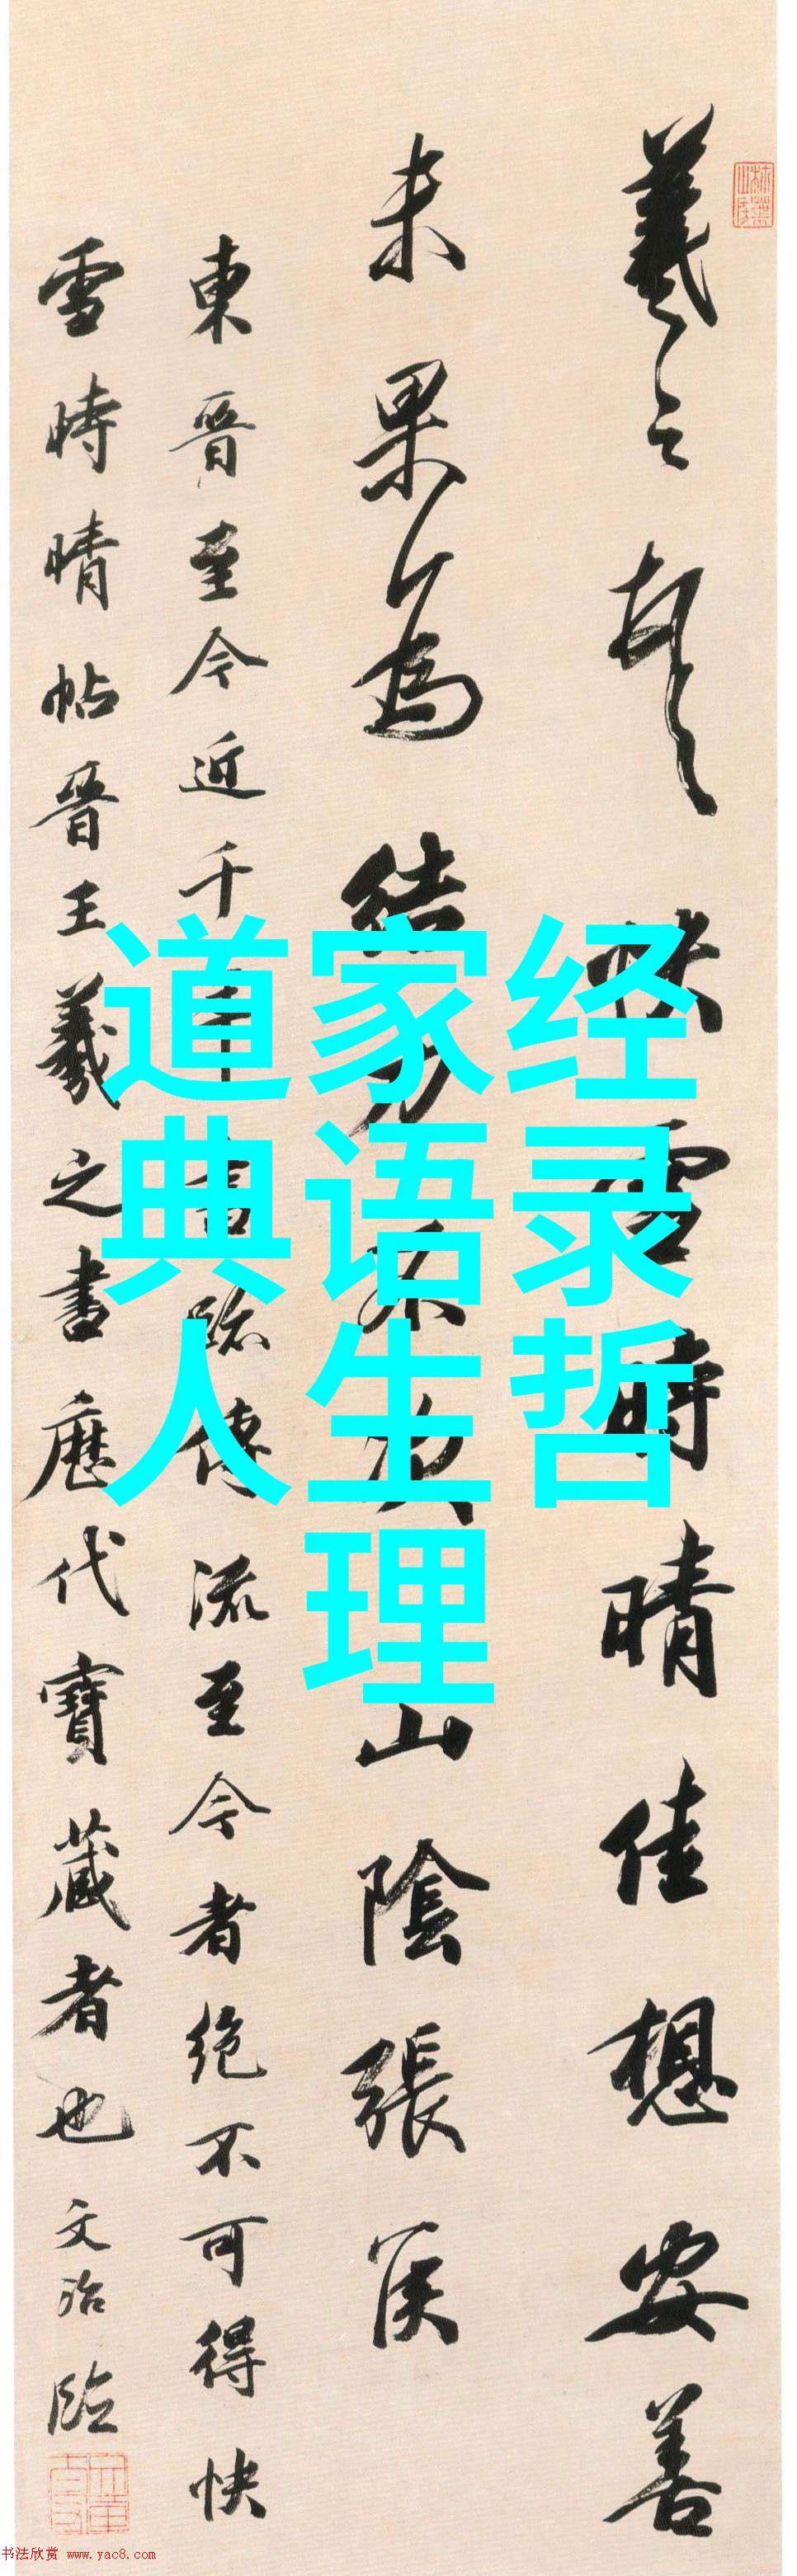 羲之頓首快雪時晴佳想安善
未果為結力不次山陰張侯
東晉至今近千年書跡傳流至今者絕不可得快
雪時晴帖晉王羲之書歷代寶藏者也文治臨
道家经
典语录
人生哲
理
书法欣赏 www.yac8.com